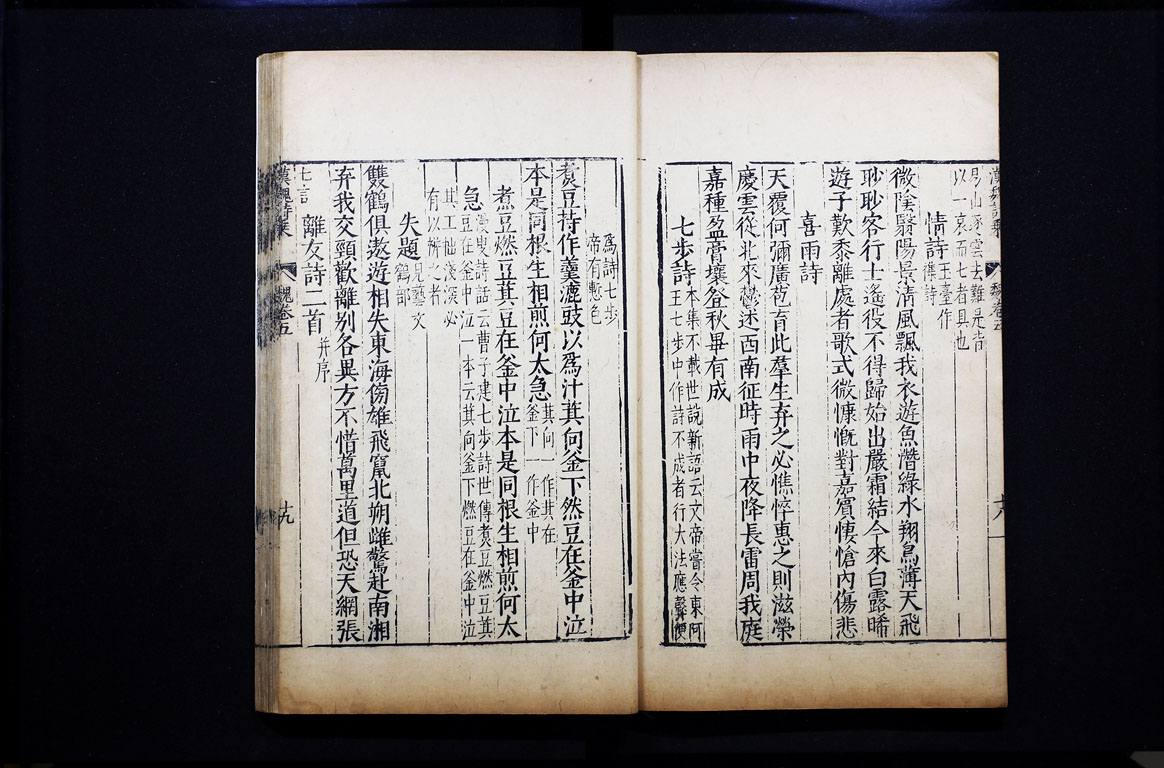 漢魏詩乘 魏卷五 十八
易山豕雲去難是皆
以一哀而七者具也
情詩 玉臺作
雜詩
微陰翳陽景清風飄我衣遊魚潛綠水翔鳥薄天飛
眇眇客行士遙役不得歸始出嚴霜結今來白露晞
遊子歎黍離處者歌式微慷慨對嘉賓悽愴內傷悲
喜雨詩
天覆何彌廣苞育此羣生弃之必憔悴惠之則滋榮
慶雲從北來鬱述西南征時雨中夜降長雷周我庭
嘉種盈膏壤登秋畢有成
七步詩 本集不載世說新語云文帝嘗令東阿
王七步中作詩不成者行大法應聲便
爲詩七步
帝有慙色
煑豆持作羹漉豉以爲汁萁向釜下然豆在釜中泣
本是同根生相煎何太急 萁向一作其在
釜下一作釜中
煮豆燃豆萁豆在釜中泣本是同根生相煎何太
急 漫叟詩話云曹子建七步詩世傳煑豆燃豆萁
豆在釜中泣一本云萁向釜下燃豆在釜中泣
其工拙淺深必
有以辨之者
失題 見藝文
鶴部
雙鶴俱遨遊相失東海傍雄飛竄北朔雌驚赴南湘
弃我交頸歡離別各異方不惜萬里道但恐天網張
七言
離友詩二首 并序
漢魏詩乘 魏卷五 十九